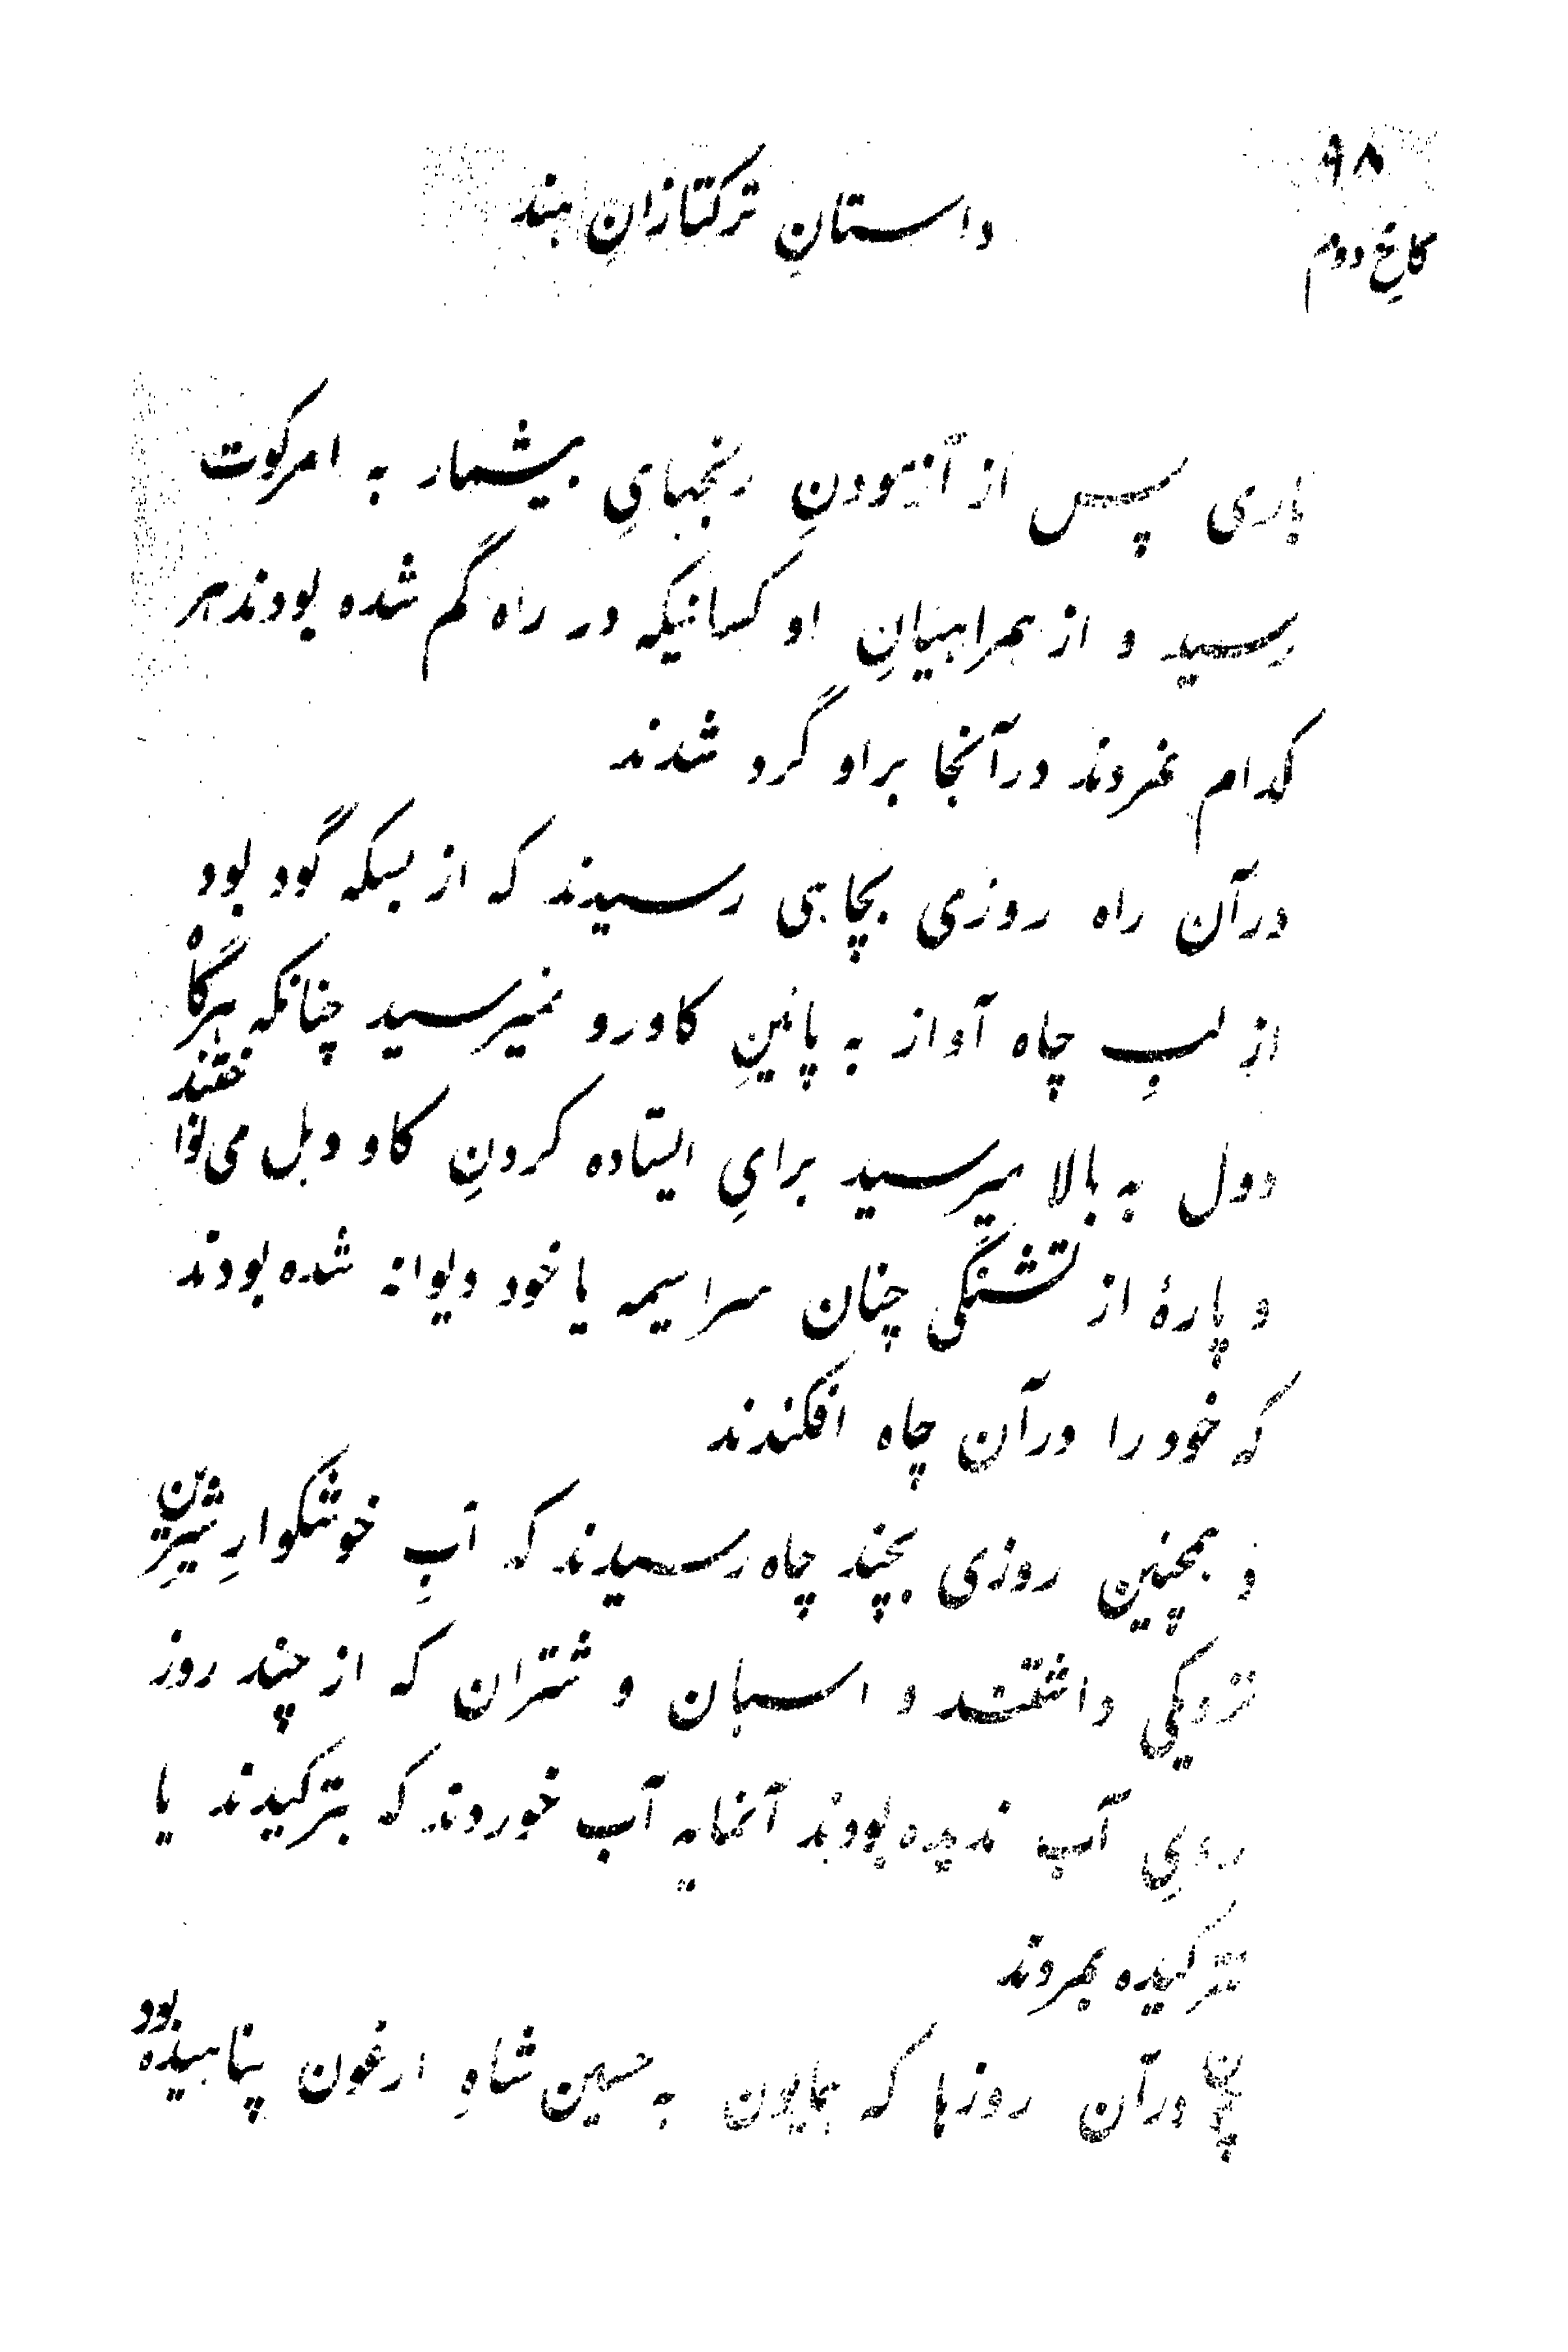 ۹۸
داستانِ ترکتازانِ هند
کاخِ دوم
باری پس از آزمودنِ رنجهایِ بیشمار به امرکوت
رسید و از همراهیانِ او کسانیکه در راه گم شده بودند هر
کدام نمردند درآنجا براو گرد شدند
درآن راه روزی بچاهی رسیدند که از بسکه گود بود
از لبِ چاه آواز به پائینِ کاورو نمیرسید چنانکه هرگاه
دول به بالا میرسید برایِ ایستاده کردنِ کاو دهل می‌نواختند
و پارهٔ از تشنگی چنان سراسیمه یا خود دیوانه شده بودند
که خود را درآن چاه افکندند
و همچنین روزی بچند چاه رسیدند که آبِ خوشگوارِ شیرین
نزدیکی داشتند و اسپان و شتران که از چند روز
رویِ آب ندیده بودند آنمایه آب خوردند که بترکیدند یا
نترکیده بمردند
چون درآن روزها که همایون به حسین شاهِ ارغون پناهیده بود